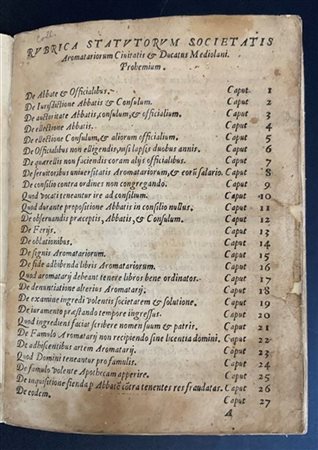 RVBRICA STATVTORVM SOCIETATIS
Aromatariorum Ciuitatis & Ducatus Mediolani.
Prohemium.
De Abbate & Officialibus. Caput 1
De Iurisdictione Abbatis & Consulum. Caput 2
De auctoritate Abbatis, consulum, & officialium. Caput 3
De ellectione Abbatis. Caput 4
De ellectione Consulum, & aliorum officialium. Caput 5
De Officialibus non elligendis, nisi lapsis duobus annis. Caput 6
De querellis non faciendis coram alijs officialibus. Caput 7
De seruitoribus uniuersitatis Aromatariorum, & eorũ salario. Caput 8
De consilio contra ordines non congregando. Caput 9
Quod Vocati teneantur ire ad consilium. Caput 10
Quod durante propositione Abbatis in consilio nullus. Caput 11
De obseruandis præceptis, Abbatis, & Consulum. Caput 12
De Ferijs. Caput 13
De oblationibus. Caput 14
De signis Aromatariorum. Caput 15
De fide adhibenda libris Aromatariorum. Caput 16
Quod aromatarij debeant tenere libros bene ordinatos. Caput 17
De denuntiatione alterius Aromatarij. Caput 18
De examine ingredi volentis societatem & solutione. Caput 19
De iuramento præstando tempore ingressus. Caput 20
Quod ingredient faciat scribere nomen suum & patris. Caput 21
De Famulo Aromatarij non recipiendo sine licentia domini. Caput 22
De adhiscentibus artem Aromatarij. Caput 23
Quod Domini teneantur pro famulis. Caput 24
De famulo volente Apothecam apperire. Caput 25
De inquisitione fienda p Abbatẽ contra tenentes res fraudatas. Caput 26
De eodem. Caput 27
A